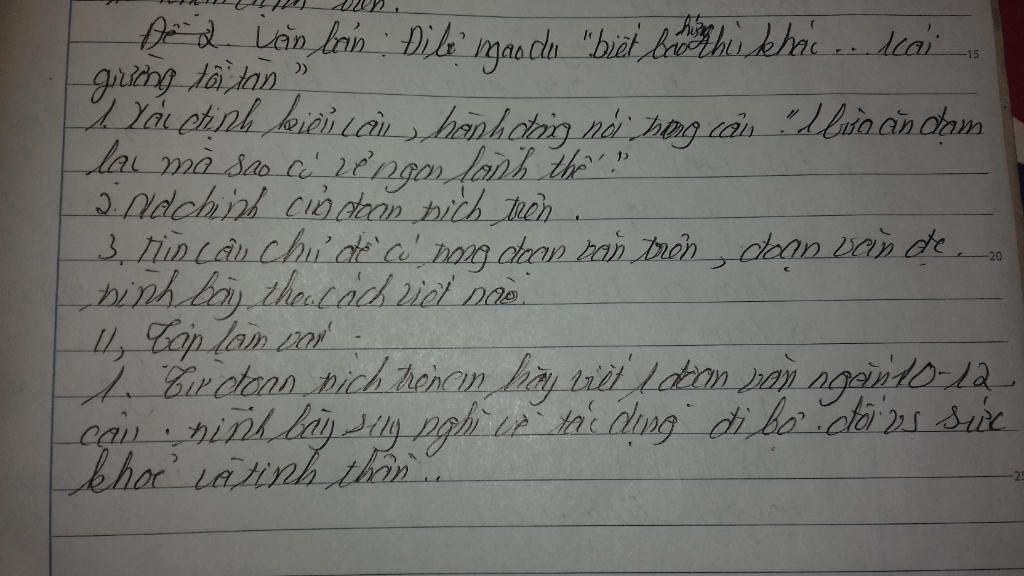 Đề 2. Văn bản: Đi bộ ngao du "biết bao hứng thú khác... 1 cái
giường tồi tàn"
1. Xác định kiểu câu, hành động nói trong câu "1 bữa ăn đạm
bạc mà sao có vẻ ngon lành thế."
2. Nd chính của đoạn trích trên.
3. Tìm câu chủ đề có trong đoạn văn trên, đoạn văn đc
trình bày theo cách viết nào.
II, Tập làm văn:
1. Từ đoạn trích trên em hãy viết 1 đoạn văn ngắn 10-12
câu. trình bày suy nghĩ về tác dụng đi bộ đối vs sức
khoẻ và tinh thần..
15
20
25